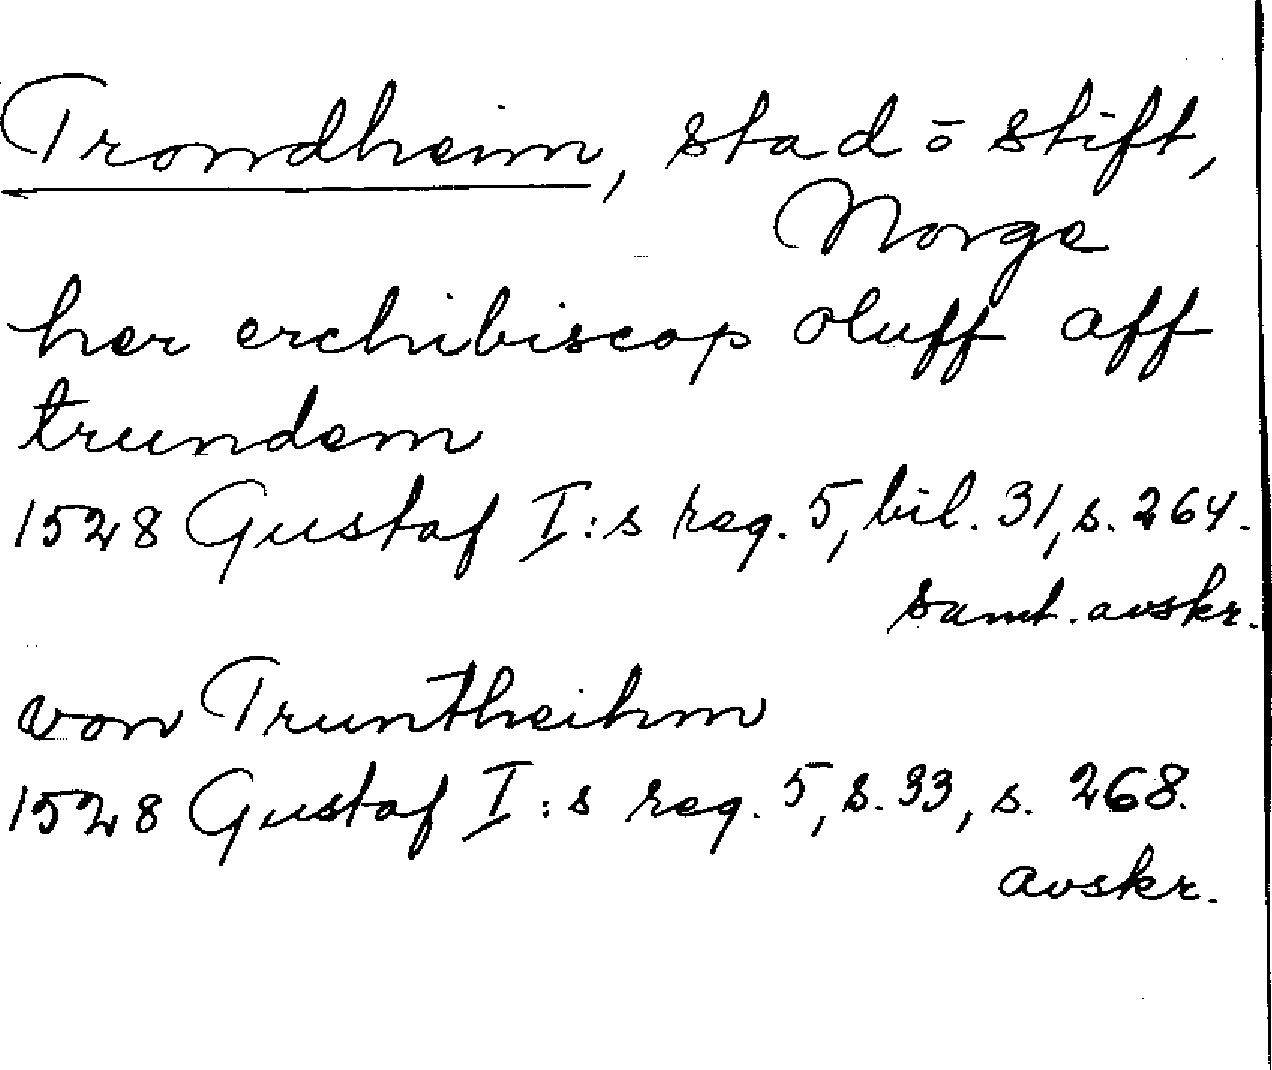 Trondheim, stad o stift,
Norge
her erchibiscop oluff aff
trundem
1528 Gustaf I:s reg. 5, bil. 31, s. 264.
samt. avskr.
von Truntheihm
1528 Gustaf I:s reg. 5, b. 33, s. 268.
avskr.